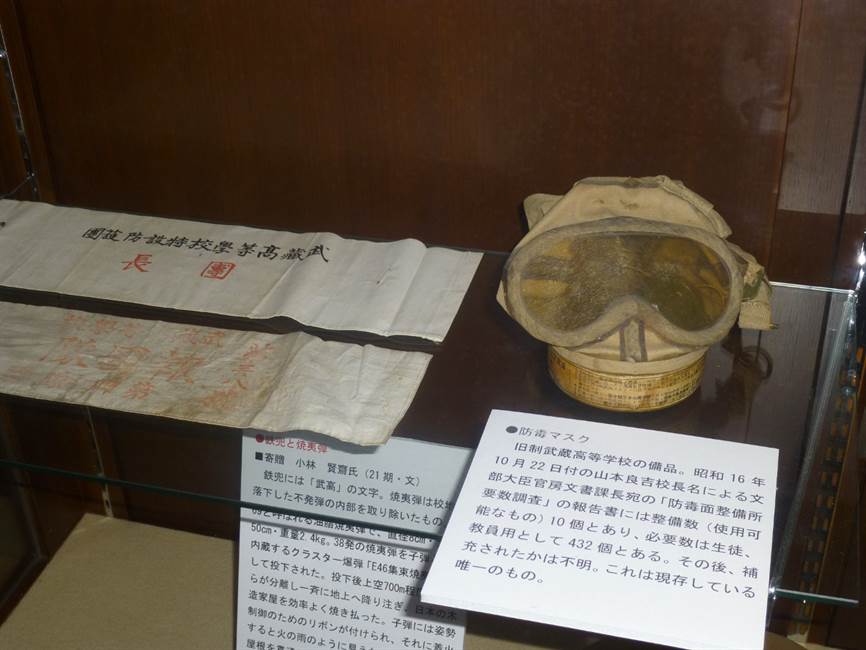 武藏高等學校特設防護團
團長
●防毒マスク
旧制武蔵高等学校の備品。昭和 16 年
10 月 22 日付の山本良吉校長名による文
部大臣官房文書課長宛の「防毒面整備所
要数調査」の報告書には整備数（使用可
能なもの）10 個とあり、必要数は生徒、
教員用として 432 個とある。その後、補
充されたかは不明。これは現存している
唯一のもの。
●鉄兜と焼夷弾
■寄贈　小林　賢齋氏（21 期・文）
鉄兜には「武高」の文字。焼夷弾は校地
落下した不発弾の内部を取り除いたもの
69と呼ばれる油脂焼夷弾で、直径8cm・
50cm・重量2.4kg。38発の焼夷弾を子弾
内蔵するクラスター爆弾「E46集束焼夷
して投下された。投下後上空700m程度
らが分離し一斉に地上へ降り注ぎ、日本の木
造家屋を効率よく焼き払った。子弾には姿勢
制御のためのリボンが付けられ、それに着火
すると火の雨のように見え